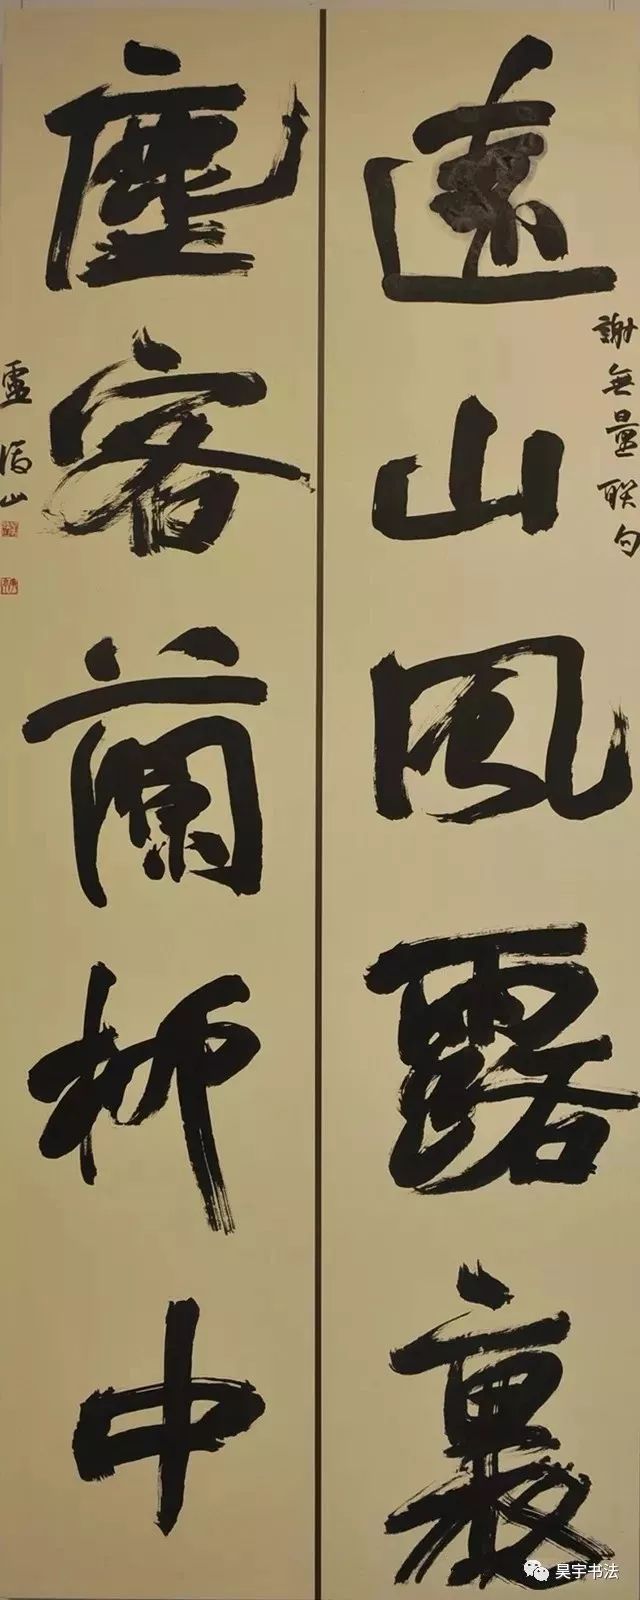 遠山風露裏
謝無量联句
塵客蘭柳中
昊宇书法